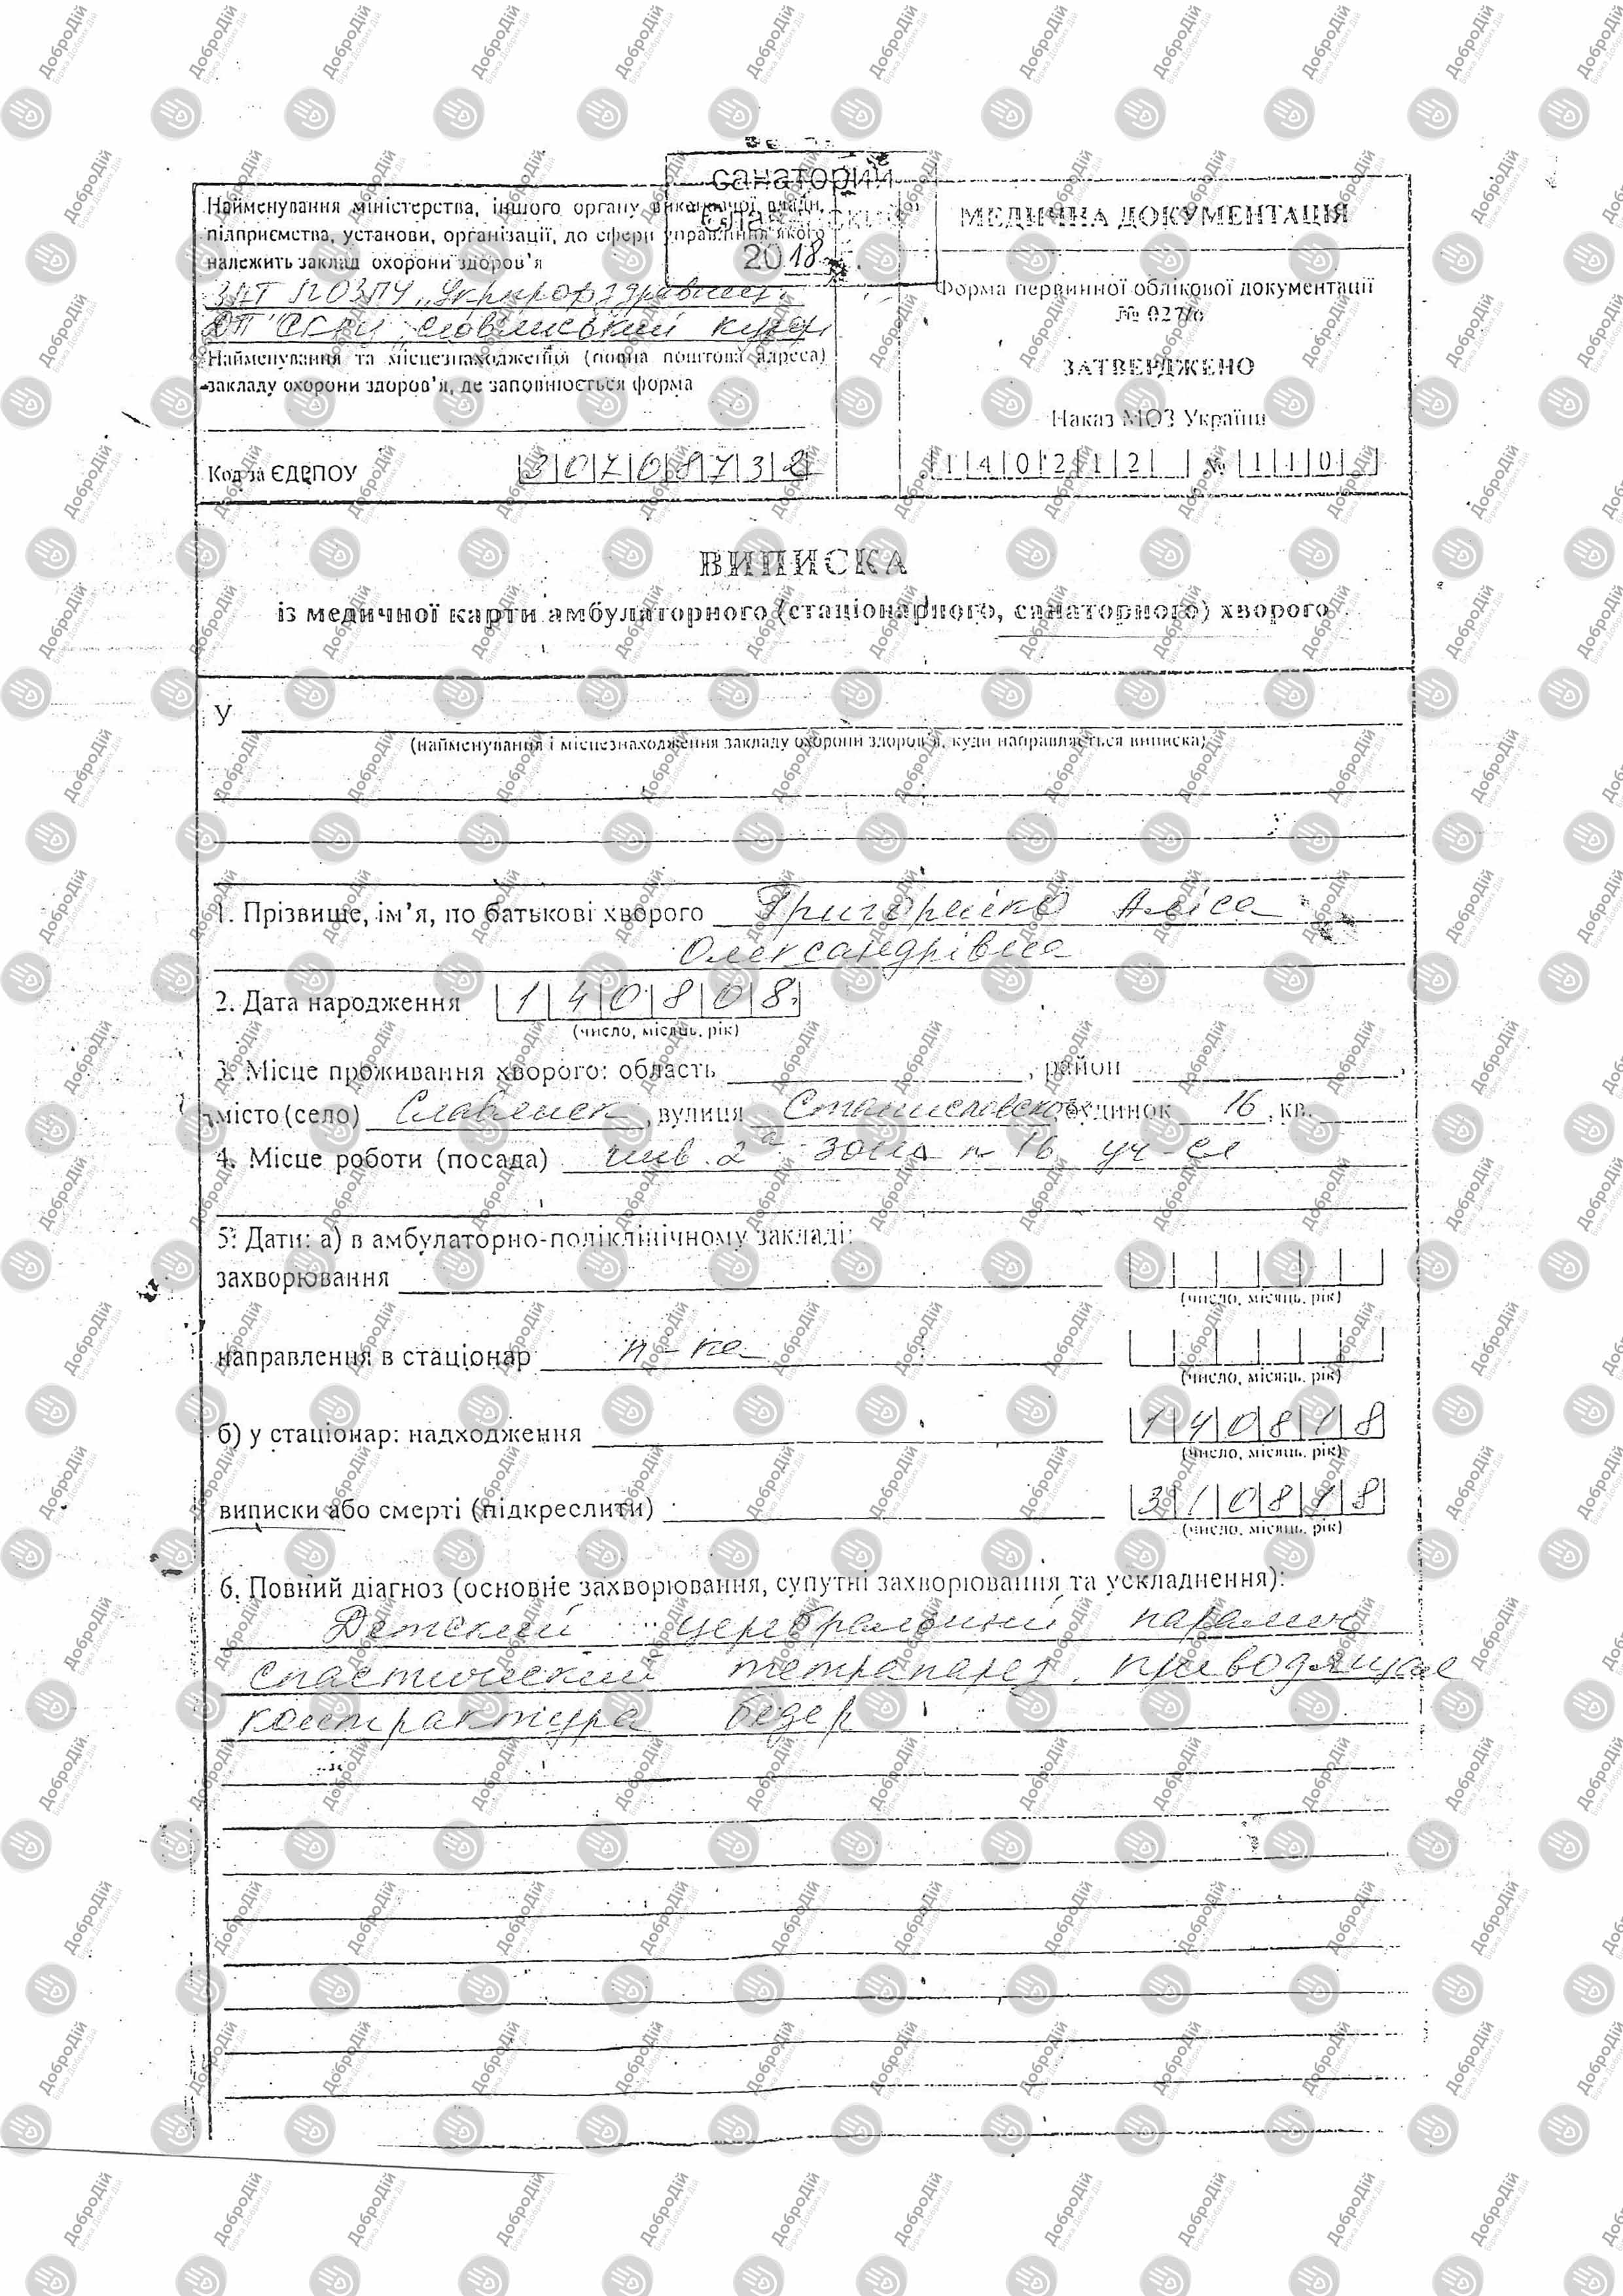 санаторий
Славянский
2018
Найменування міністерства, іншого органу виконавчої влади,
підприємства, установи, організації, до сфери управління якого
належить заклад охорони здоров'я
ЗАТ ЛОЗПУ „Укрпрофздравниця"
ДП словянський курорт
Найменування та місцезнаходження (повна поштова адреса)
закладу охорони здоров'я, де заповнюється форма
Код за ЄДРПОУ 30708732
МЕДИЧНА ДОКУМЕНТАЦІЯ
Форма первинної облікової документації
№ 027/о
ЗАТВЕРДЖЕНО
Наказ МОЗ України
140212 № 110
ВИПИСКА
із медичної карти амбулаторного (стаціонарного, санаторного) хворого
У
(найменування і місцезнаходження закладу охорони здоров'я, куди направляється виписка)
1. Прізвище, ім'я, по батькові хворого Григоренко Аліса
Олександрівна
2. Дата народження 140808
(число, місяць, рік)
3. Місце проживання хворого: область , район ,
місто (село) Славянск , вулиця будинок 16 , кв.
4. Місце роботи (посада) инв. 2а зона п 16 уч-ся
5. Дати: а) в амбулаторно-поліклінічному закладі:
захворювання
(число, місяць, рік)
направлення в стаціонар п-ка
(число, місяць, рік)
б) у стаціонар: надходження 140818
(число, місяць, рік)
виписки або смерті (підкреслити) 310818
(число, місяць, рік)
6. Повний діагноз (основне захворювання, супутні захворювання та ускладнення):
Детский церебральный паралич
спастический тетрапарез, приводящая
контрактура бедер
ДоброДій
Біржа Добрих Дій